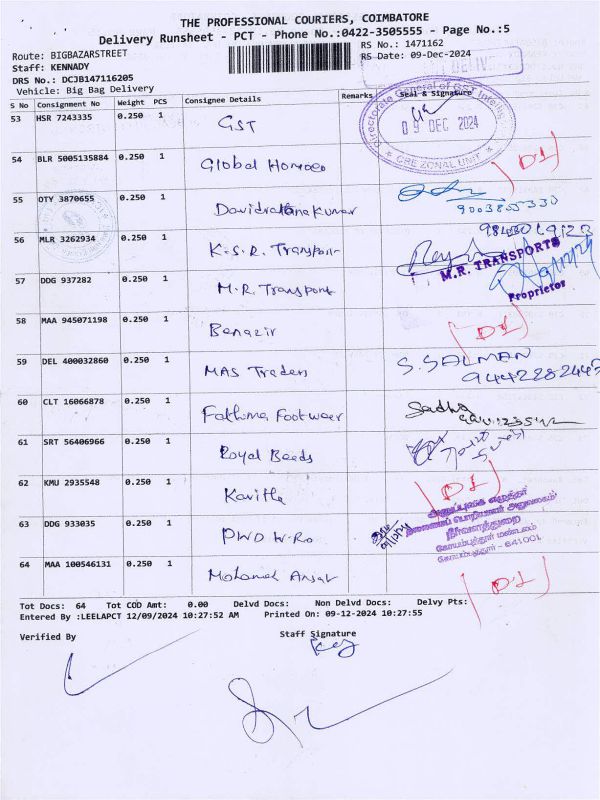 THE PROFESSIONAL COURIERS, COIMBATORE
Delivery Runsheet - PCT - Phone No.:0422-3505555 - Page No.:5
Route: BIGBAZARSTREET
RS No.: 1471162
Staff: KENNADY
RS Date: 09-Dec-2024
DRS No.: DCJB147116205
Vehicle: Big Bag Delivery
DELIV
S No Consignment No Weight PCS Consignee Details Remarks Seal & Signature
53 HSR 7243335 0.250 1 GST
Directorate General of GST Intelli
09 DEC 2024
CRE ZONAL UNIT
54 BLR 5005135884 0.250 1 Global Homoeo D1
55 OTY 3870655 0.250 1 Davidratana Kumar
9003855330
56 MLR 3262934 0.250 1 K.S.R. Transport
57 DDG 937282 0.250 1 M.R. Transport
M.R. TRANSPORTS
Proprietor
58 MAA 945071198 0.250 1 Benazir D1
59 DEL 400032860 0.250 1 MAS Traders S. SALMAN
9444228244
60 CLT 16066878 0.250 1 Fathima Footwear Sadhu
61 SRT 56406966 0.250 1 Royal Beeds
62 KMU 2935548 0.250 1 Kavitha D1
63 DDG 933035 0.250 1 PWD W.R.O
09/12/24
அனுப்புகை எழுத்தர்
தலைமைப் பொறியாளர் அலுவலகம்
நீர்வளத்துறை
கோயம்புத்தூர் மண்டலம்
கோயம்புத்தூர் - 641001
64 MAA 100546131 0.250 1 Mohamed Ansar D1
Tot Docs: 64 Tot COD Amt: 0.00 Delvd Docs: Non Delvd Docs: Delvy Pts:
Entered By :LEELAPCT 12/09/2024 10:27:52 AM Printed On: 09-12-2024 10:27:55
Verified By
Staff Signature